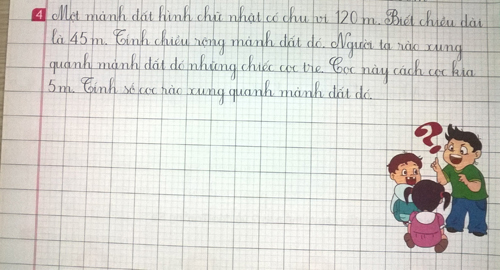 4 Một mảnh đất hình chữ nhật có chu vi 120 m. Biết chiều dài
là 45 m. Tính chiều rộng mảnh đất đó. Người ta rào xung
quanh mảnh đất đó những chiếc cọc tre. Cọc này cách cọc kia
5 m. Tính số cọc rào xung quanh mảnh đất đó.
?